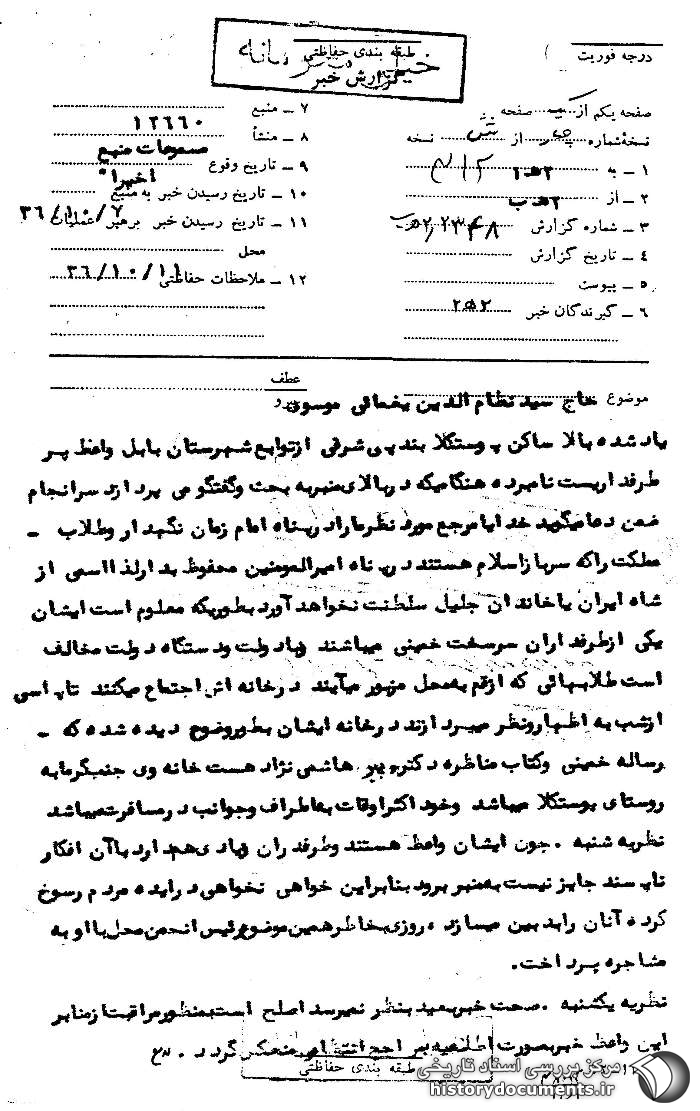 طبقه بندی حفاظتی
خیلی محرمانه
گزارش خبر
درجه فوریت
صفحه یکم از یک صفحه
نسخه شماره از نسخه
۱ ـ به ۳۱۲
۲ ـ از ۲ ه‍ ب
۳ ـ شماره گزارش
۴ ـ تاریخ گزارش
۵ ـ پیوست
۶ ـ گیرندگان خبر ۲۵۲
۷ ـ منبع ۱۲۶۶۰
۸ ـ منشأ مسموعات منبع
۹ ـ تاریخ وقوع اخیرا"
۱۰ ـ تاریخ رسیدن خبر به منبع
۱۱ ـ تاریخ رسیدن خبر برهبر عملیات ۳۶/۱۰/۷
محل
۱۲ ـ ملاحظات حفاظتی ۳۶/۱۰/۱۱
عطف
موضوع حاج سید نظام الدین یخمائی موسوی
یاد شده بالا ساکن پوستکلا بندپی شرقی ازتوابع شهرستان بابل واعظ پر
طرفداریست نامبرده هنگامیکه در بالای منبر به بحث وگفتگو می پردازد سرانجام
ضمن دعا میگوید خدایا مرجع مورد نظر ما را در پناه امام زمان نگهدار وطلاب ـ
مملکت راکه سرباز اسلام هستند در پناه امیرالمومنین محفوظ بدار لذا اسمی از
شاه ایران یا خاندان جلیل سلطنت نخواهد آورد بطوریکه معلوم است ایشان
یکی ازطرفداران سرسخت خمینی میباشند و با دولت ودستگاه دولت مخالف
است طلابهائی که ازقم به محل مزبور میآیند درخانه اش اجتماع میکنند تا پاسی
ازشب به اظهارونظر میپردازند درخانه ایشان بطور وضوح دیده شده که ـ
رساله خمینی وکتاب مناظره دکتر و پیر هاشمی نژاد هست خانه وی
روستای پوستکلا میباشد وخود اکثر اوقات به اطراف وجوانب در مسافرت میباشد
نظریه شنبه . چون ایشان واعظ هستند وطرفدران زیادی هم دارد با آن افکار
ناپسند جایز نیست به منبر برود بنابراین خواهی نخواهی در ایده مردم رسوخ
کرده آنان را بدبین میسازد . روزی بخاطر همین موضوع رئیس انجمن محل با او به
مشاجره پرداخت.
نظریه یکشنبه . صحت خبر بعید بنظر نمیرسد اصلح است بمنظور مراقبت از منابر
این واعظ خبر بصورت اطلاعیه به مراجع انتظامی منعکس گردد .
طبقه بندی حفاظتی
مرکز بررسی اسناد تاریخی
historydocuments.ir